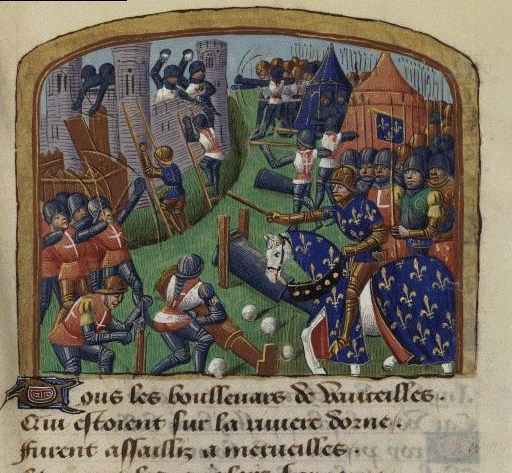 Tous les boulleuars de Vauceilles.
Qui estoient sur la riuiere dorne.
Furent assailliz a merueilles.